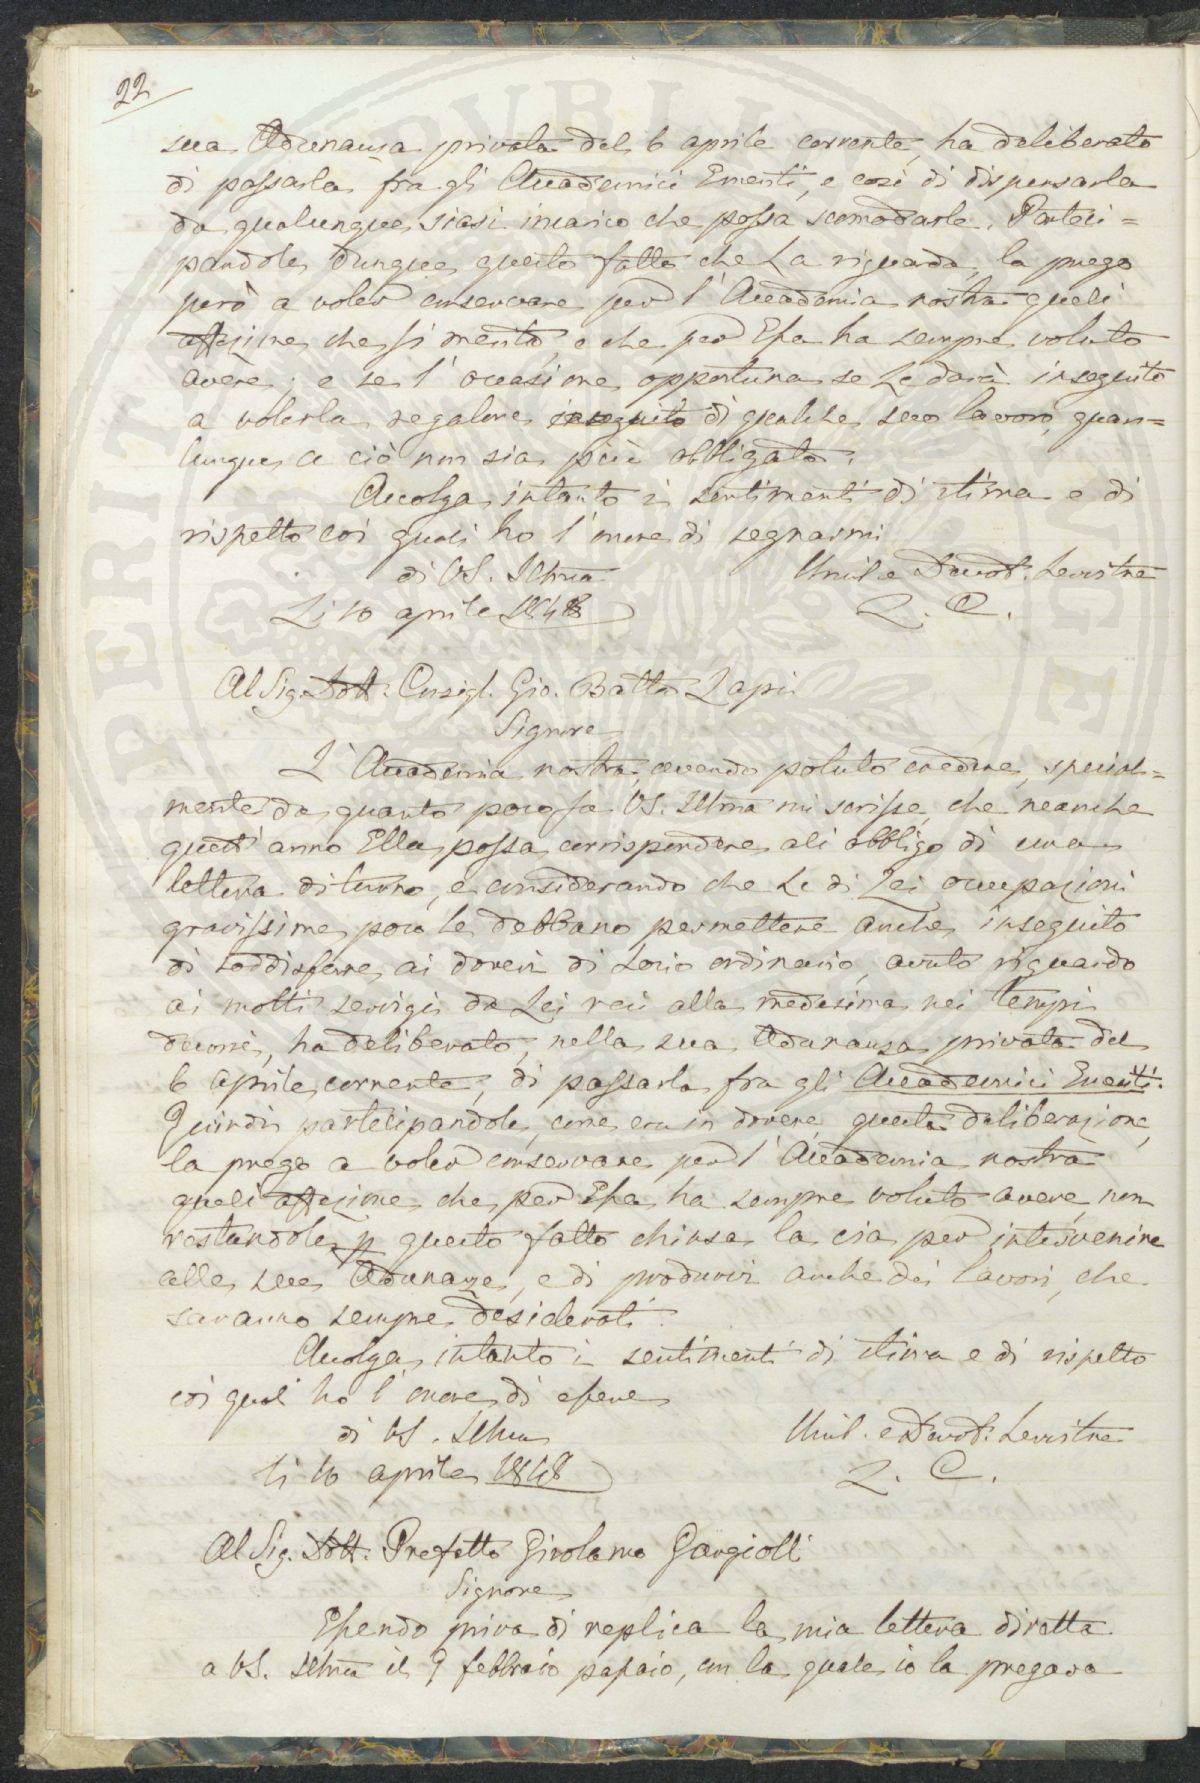 22
sua Adunanza privata del 6 aprile corrente, ha deliberato
di passarla fra gli Accademici Emeriti, e così di dispensarla
da qualunque siasi incarico che possa scomodarla. Parteci=
pandole dunque questo fatto che La riguarda, la prego
però a voler conservare per l'Accademia nostra quell'
affezione che si meritò, e che per Essa ha sempre voluto
avere; e se l'occasione opportuna se Le darà inseguito
a volerla regalare inseguito di qualche suo lavoro, quan=
tunque a ciò non sia più obbligato.
Accolga intanto i sentimenti di stima e di
rispetto coi quali ho l'onore di segnarmi
di VS. Illma Umil. e Devot. Servitore
Li 10 aprile 1848 L. C.
Al Sig. Dott. Consigl. Gio. Batta Lapi
Signore
L'Accademia nostra avendo potuto credere, special=
mente da quanto poco fa VS. Illma mi scrisse, che neanche
quest'anno Ella possa corrispondere all'obbligo di una
lettura di turno, e considerando che Le di Lei occupazioni
gravissime poco le debbano permettere anche inseguito
di soddisfare ai doveri di Socio ordinario, avuto riguardo
ai molti servigi da Lei resi alla medesima nei tempi
decorsi, ha deliberato, nella sua Adunanza privata del
6 aprile corrente, di passarla fra gli Accademici Emeriti.
Quindi partecipandole, come era in dovere, questa deliberazione,
la prego a voler conservare per l'Accademia nostra
quell'affezione che per Essa ha sempre voluto avere, non
restandole p questo fatto chiusa la via per intervenire
alle sue Adunanze, e di produrvi anche dei lavori, che
saranno sempre desiderati.
Accolga intanto i sentimenti di stima e di rispetto
coi quali ho l'onore di essere
di VS. Illma Umil. e Devot. Servitore
li 10 aprile 1848 L. C.
Al Sig. Dott. Prefetto Girolamo Gargiolli
Signore
Essendo priva di replica la mia lettera diretta
a VS. Illma il 9 febbraio passato, con la quale io la pregava